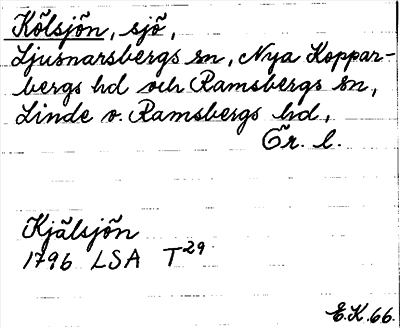 Kölsjön, sjö,
Ljusnarsbergs sn, Nya Koppar-
bergs hd och Ramsbergs sn,
Linde o. Ramsbergs hd,
Ör. l.
Kjälsjön
1796 LSA T29
E.K.66.